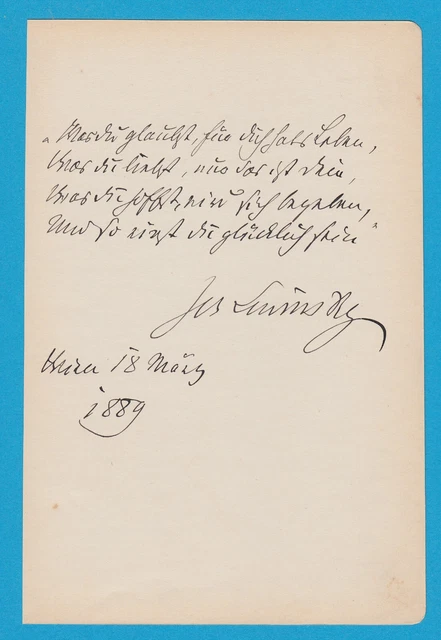 „Was du glaubst, für dich hats Leben,
Was du liebst, nur das ist dein,
Was du hoffst, wird sich begeben,
Und so wirst du glücklich sein“
Jos Lewinsky
Wien 18 März
1889